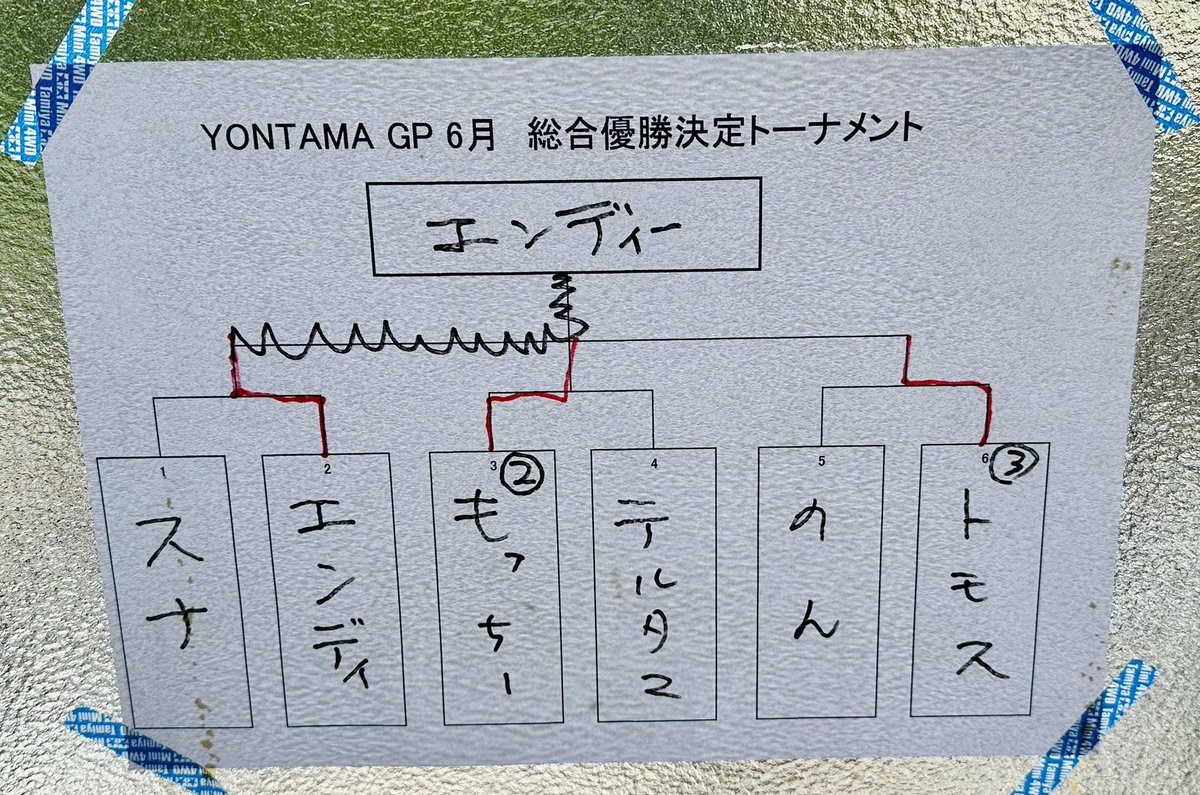 YONTAMA GP 6月 総合優勝決定トーナメント
エンディー
1
スナ
2
エンディ
3
②
もっちー
4
テルタ2
5
のん
6
③
トモス
Tamiya Mini 4WD
Tamiya Mini 4WD
Tamiya Mini 4WD
Tamiya Mini 4WD